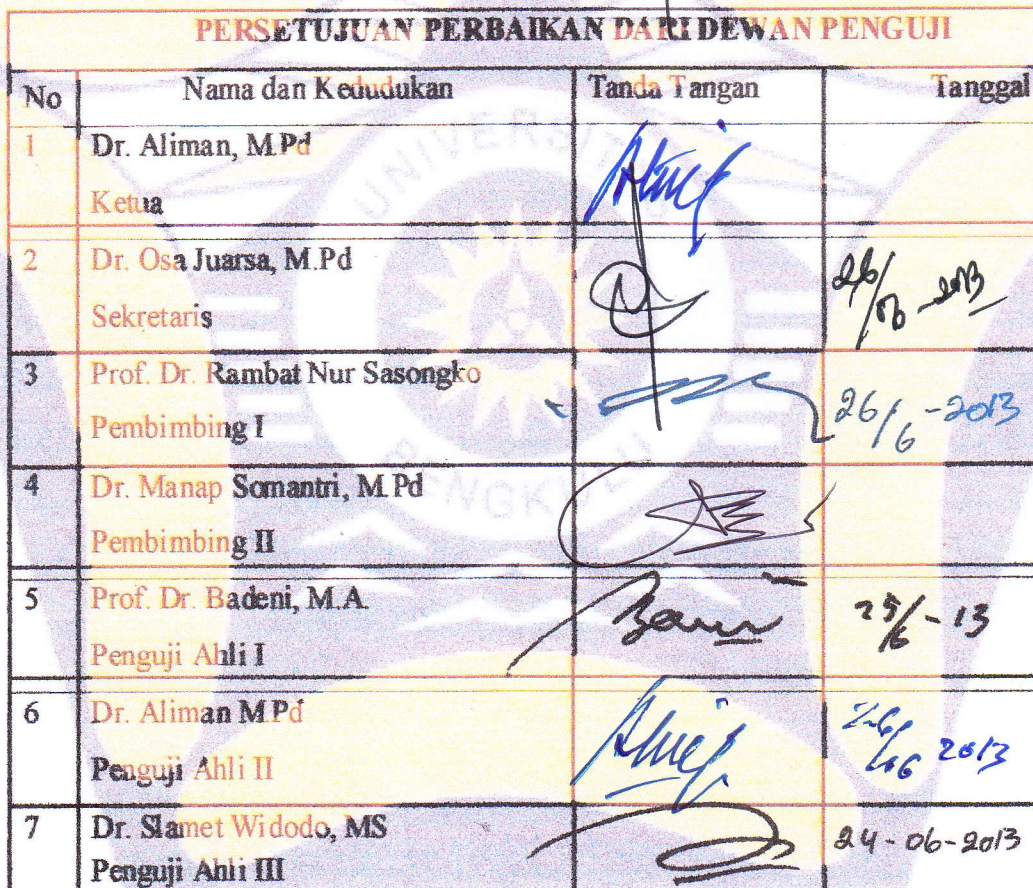 PERSETUJUAN PERBAIKAN DARI DEWAN PENGUJI
No Nama dan Kedudukan Tanda Tangan Tanggal
1 Dr. Aliman, M.Pd
Ketua
2 Dr. Osa Juarsa, M.Pd
Sekretaris
3 Prof. Dr. Rambat Nur Sasongko
Pembimbing I 26/6 - 2013
4 Dr. Manap Somantri, M.Pd
Pembimbing II
5 Prof. Dr. Badeni, M.A. 25/6 - 13
Penguji Ahli I
6 Dr. Aliman M.Pd 2013
Penguji Ahli II
7 Dr. Slamet Widodo, MS 24-06-2013
Penguji Ahli III
UNIVERSITAS
BENGKULU